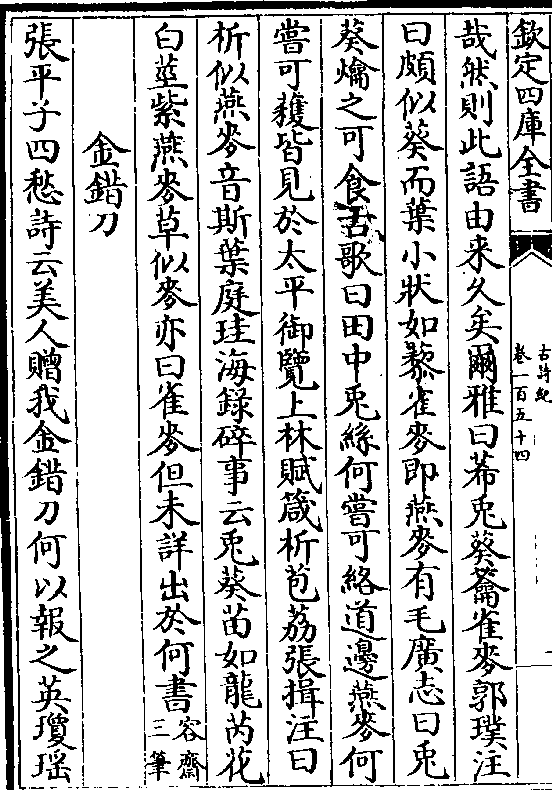 欽定四庫全書
古詩紀
卷一百五十四
哉然則此語由来久矣爾雅曰莃兎葵蘥雀麥郭璞注
曰頗似葵而葉小狀如藜雀麥即燕麥有毛廣志曰兎
葵爚之可食古歌曰田中兎絲何嘗可絡道邊燕麥何
嘗可穫皆見於太平御覽上林賦葴析苞荔張揖注曰
析似燕麥音斯葉庭珪海錄碎事云兎葵苗如龍芮花
白莖紫燕麥草似麥亦曰雀麥但未詳出於何書容齋三筆
金錯刀
張平子四愁詩云美人贈我金錯刀何以報之英瓊瑶